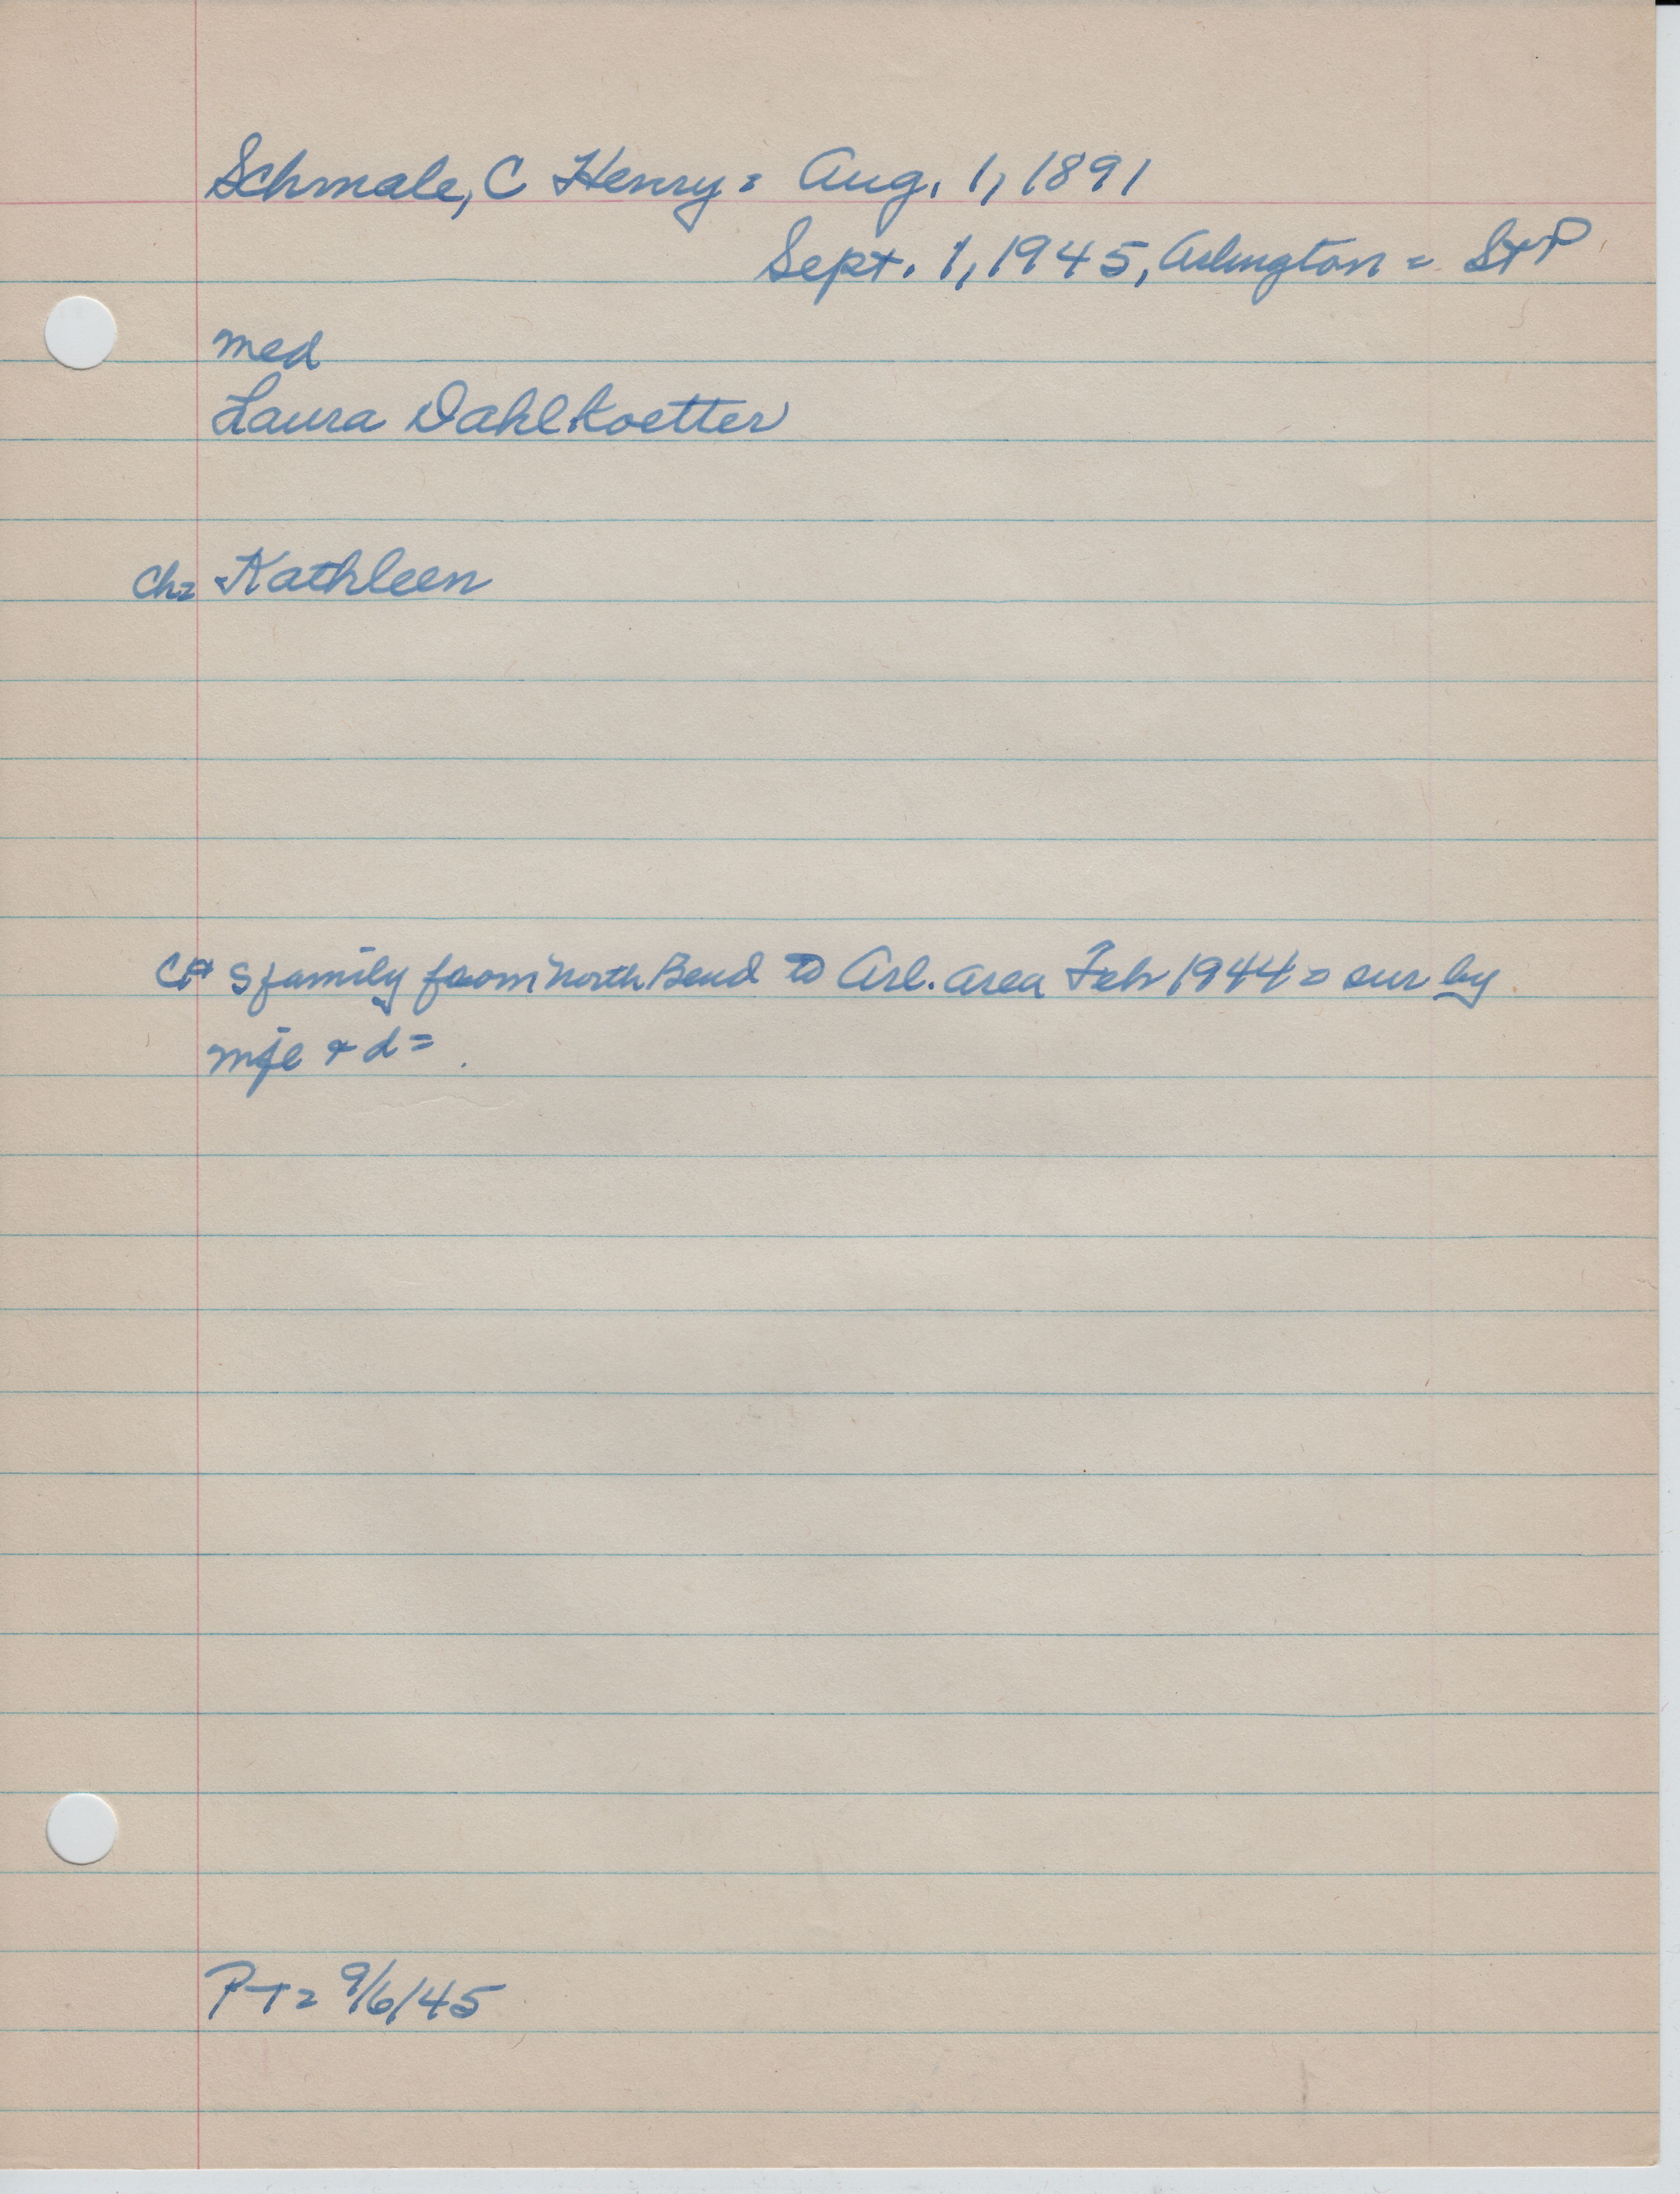 Schmale, C Henry = Aug. 1, 1891
Sept. 1, 1945, Arlington = St P
med
Laura Dahlkoetter
Ch= Kathleen
S family from North Bend to Arl. area Feb 1944 = sur by
+ d =
PT= 9/6/45